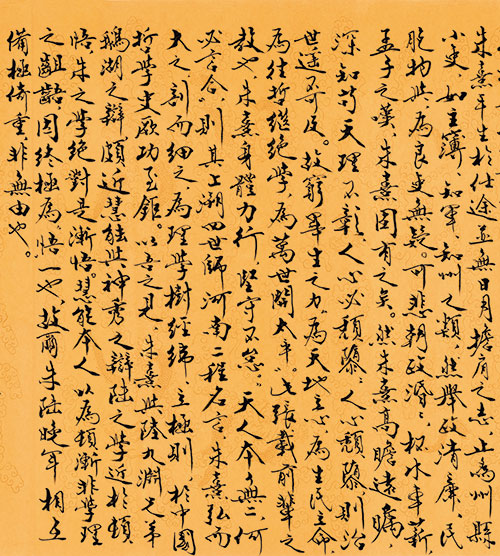 朱熹平生於仕途並無日月擔肩之志，止為州縣
小吏，如主簿、知軍、知州之類，然舉政清廉，民
胞物與，為良吏無疑。可悲朝政，杯水車薪
孟子之嘆，朱熹固有之矣。然朱熹高瞻遠矚
深知苟天理不彰，人心必頹隳，人心頹隳則治
世遙不可及。故窮畢生之力，為天地立心，為生民立命，
為往哲繼絕學，為萬世開太平。此張載前輩之
教也，朱熹身體力行，堅守不怠。天人本無二，何
必言合，則其上溯四世師河南二程名言，朱熹弘而
大之，剖而細之，為理學樹經緯，立極則，於中國
哲學史厥功至鉅。以吾之見，朱熹與陸九淵兄弟
鵝湖之辯頗近慧能與神秀之辯，陸之學近於頓
悟，朱之學絕對是漸悟。慧能本人以為頓漸非學理
之齟齬，因終極為悟一也，故爾朱陸晚年相互
備極倚重，非無由也。